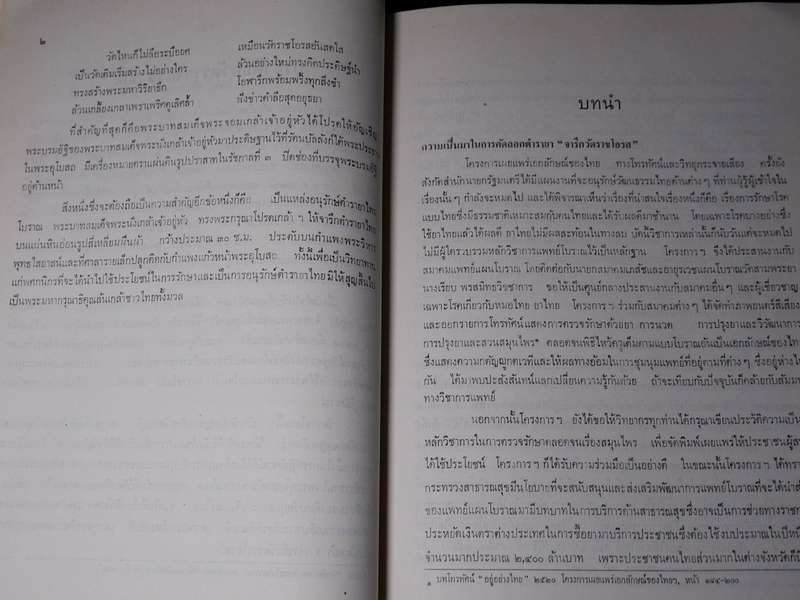 ๒
วัดไหนก็ไม่ลือระบือยศ เหมือนวัดราชโอรสอันสดใส
เป็นวัดเดิมเริ่มสร้างไม่อย่างใคร ล้วนอย่างใหม่ทรงคิดประดิษฐ์นำ
ทรงสร้างพระมหาวิริยาธึก โอฬารึกพร้อมพริ้งทุกสิ่งขำ
ล้วนเกลี้ยงเกลาเพราเพริศดูเลิศล้ำ ฟังข่าวคำลือสุดอยุธยา
ที่สำคัญที่สุดก็คือพระบาทสมเด็จพระจอมเกล้าเจ้าอยู่หัวได้โปรดให้อัญเชิญ
พระบรมอัฐิของพระบาทสมเด็จพระนั่งเกล้าเจ้าอยู่หัวมาประดิษฐานไว้ที่รัตนบัลลังก์ใต้พระประธาน
ในพระอุโบสถ มีเครื่องหมายตราแผ่นดินรูปปราสาทในรัชกาลที่ ๓ ปิดช่องที่บรรจุพระบรมอัฐิ
อยู่ด้านหน้า
สิ่งหนึ่งซึ่งจะต้องถือเป็นความสำคัญอีกข้อหนึ่งก็คือ เป็นแหล่งอนุรักษ์ตำรายาไทย
โบราณ พระบาทสมเด็จพระนั่งเกล้าเจ้าอยู่หัว ทรงพระกรุณาโปรดเกล้า ฯ ให้จารึกตำรายาไทย
บนแผ่นหินอ่อนรูปสี่เหลี่ยมผืนผ้า กว้างประมาณ ๓๐ ซ.ม. ประดับบนกำแพงพระวิหาร
พุทธไสยาสน์และที่ศาลารายเล็กปลูกติดกับกำแพงแก้วหน้าพระอุโบสถ ทั้งนี้เพื่อเป็นวิทยาทาน
แก่พสกนิกรที่จะได้นำไปใช้ประโยชน์ในการรักษาและเป็นการอนุรักษ์ตำรายาไทยมิให้สูญสิ้นไป
เป็นพระมหากรุณาธิคุณล้นเกล้าชาวไทยทั้งมวล
บทนำ
ความเป็นมาในการคัดลอกตำรายา “จารึกวัดราชโอรส”
โครงการเผยแพร่เอกลักษณ์ของไทย ทางโทรทัศน์และวิทยุกระจายเสียง ครั้งยัง
สังกัดสำนักนายกรัฐมนตรีได้มีแผนงานที่จะอนุรักษ์วัฒนธรรมไทยด้านต่าง ๆ ที่ท่านผู้รู้ผู้เข้าใจใน
เรื่องนั้นๆ กำลังจะหมดไป และได้พิจารณาเห็นว่าเรื่องที่น่าสนใจเรื่องหนึ่งก็คือ เรื่องการรักษาโรค
แบบไทยซึ่งมีธรรมชาติเหมาะสมกับคนไทยและได้รับผลดีมาช้านาน โดยเฉพาะโรคบางอย่างซึ่ง
ใช้ยาไทยแล้วได้ผลดี ยาไทยไม่มีผลสะท้อนในทางลบ บัดนี้วิชาการเหล่านี้ก็นับวันแต่จะหมดไป
ไม่มีผู้ใดรวบรวมหลักวิชาการแพทย์โบราณไว้เป็นหลักฐาน โครงการฯ จึงได้ประสานงานกับ
สมาคมแพทย์แผนโบราณ โดยติดต่อกับนายกสมาคมเภสัชและอายุรเวชแผนโบราณวัดสามพระยา
นางเรียบ พรสมิทธวิชาการ ขอให้เป็นศูนย์กลางประสานงานกับสมาคมอื่นๆ และผู้เชี่ยวชาญ
เฉพาะโรคเกี่ยวกับหมอไทย ยาไทย โครงการฯ ร่วมกับสมาคมต่างๆ ได้จัดทำภาพยนตร์สีเสียง
และออกรายการโทรทัศน์แสดงการตรวจรักษาด้วยยา การนวด การปรุงยาและวิวัฒนาการ
การปรุงยาและสวนสมุนไพร* ตลอดจนพิธีไหว้ครูเดิมตามแบบโบราณอันเป็นเอกลักษณ์ของไท
ซึ่งแสดงความกตัญญูกตเวทีและให้ผลทางอ้อมในการชุมนุมแพทย์ที่อยู่ตามที่ต่างๆ ซึ่งอยู่ห่างไ
กัน ได้มาพบปะสังสันทน์แลกเปลี่ยนความรู้กันด้วย ถ้าจะเทียบกับปัจจุบันก็คล้ายกับสัมมน
ทางวิชาการแพทย์
นอกจากนั้นโครงการฯ ยังได้ขอให้วิทยากรทุกท่านได้กรุณาเขียนประวัติความเป็น
หลักวิชาการในการตรวจรักษาตลอดจนเรื่องสมุนไพร เพื่อจัดพิมพ์เผยแพร่ให้ประชาชนผู้ส
ได้ใช้ประโยชน์ โครงการฯ ก็ได้รับความร่วมมือเป็นอย่างดี ในขณะนั้นโครงการฯ ได้ทรา
กระทรวงสาธารณสุขมีนโยบายที่จะสนับสนุนและส่งเสริมพัฒนาการแพทย์โบราณที่จะได้นำส
ของแพทย์แผนโบราณมามีบทบาทในการบริการด้านสาธารณสุขซึ่งอาจเป็นการช่วยทางราชก
ประหยัดเงินตราต่างประเทศในการซื้อยามาบริการประชาชนซึ่งต้องใช้งบประมาณในปีหนึ่
จำนวนมากประมาณ ๒,๔๐๐ ล้านบาท เพราะประชาชนคนไทยส่วนมากในต่างจังหวัดก็นิ
* บทโทรทัศน์ “อยู่อย่างไทย” ๒๕๒๐ โครงการเผยแพร่เอกลักษณ์ของไทยฯ, หน้า ๑๙๔-๒๐๐